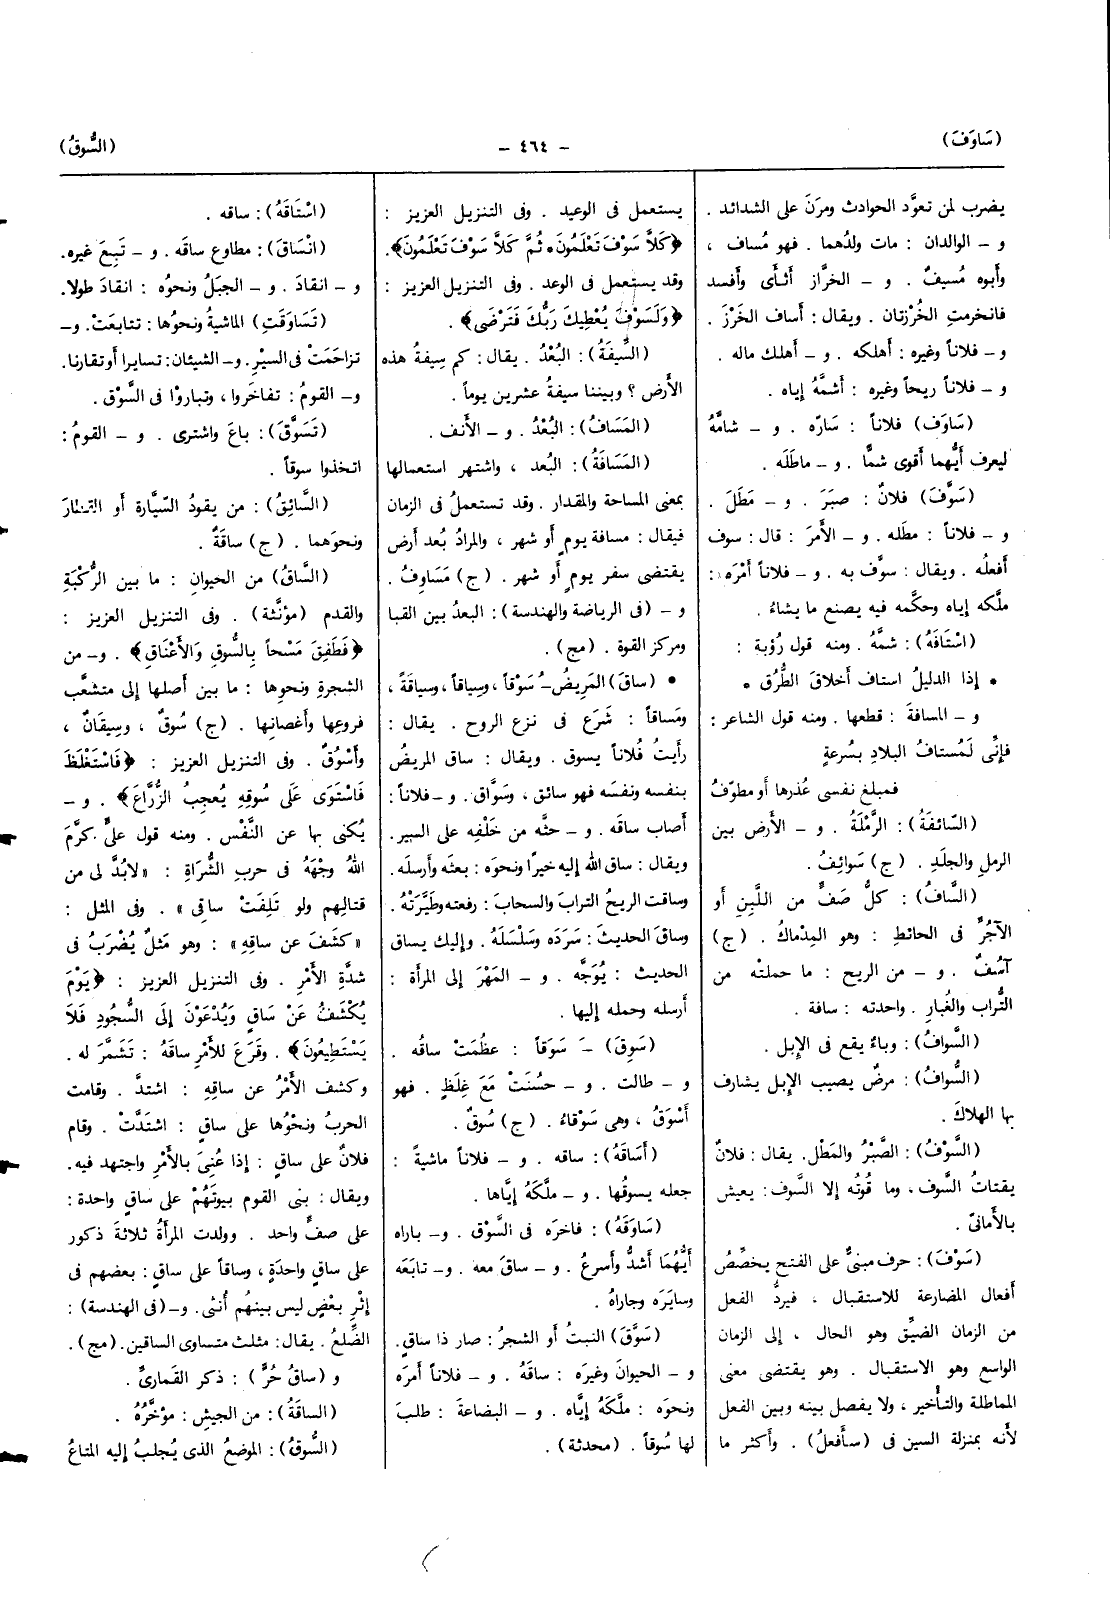 (سَاوَفَ)
- ٤٦٤ -
(السُّوقُ)
يضرب لمن تعوَّد الحوادث ومرَنَ على الشدائد .
و – الوالدان : مات ولدُهما . فهو مُساف ،
وأبوه مُسيفٌ . و – الخرَّاز أثأى وأفسد
فانخرمتِ الخُرْزتان . ويقال : أساف الخَرْزَ .
و – فلاناً وغيره : أهلكه . و – أهلك ماله .
و – فلاناً ريحاً وغيره : أشمَّهُ إياه .
(سَاوَف) فلاناً : سَارّه . و – شامَّهُ
ليعرف أيُّهما أقوى شمًّا . و – ماطَلَه .
(سَوَّفَ) فلانٌ : صبَرَ . و – مَطَلَ .
و – فلاناً : مطَله . و – الأمرَ : قال : سوف
أفعلُه . ويقال : سوَّف به . و – فلاناً أمْرَه :
ملَّكه إياه وحكَّمه فيه يصنع ما يشاءُ .
(اسْتَافَهُ) : شمَّهُ . ومنه قول رُؤبة :
* إذا الدليلُ استاف أخلاقَ الطُّرُق *
و – المسافةَ : قطعها . ومنه قول الشاعر :
فإنِّى لَمُستافُ البلادِ بسُرعةٍ
فمبلغ نفسى عُذرها أو مطوِّفُ
(السّائفَةُ) : الرَّمْلَةُ . و – الأرض بين
الرملِ والجلَدِ . (ج) سَوائِفُ .
(السَّافُ) : كلُّ صَفٍّ من اللَّبِنِ أو
الآجُرِّ فى الحائطِ : وهو المِدْماكُ . (ج)
آسُفٌ . و – من الريح : ما حملتْه من
التُّراب والغُبار . واحدته : سافة .
(السَّوافُ) : وباءٌ يقع فى الإبل .
(السُّوافُ) : مرضٌ يصيب الإبل يشارف
بها الهلاكَ .
(السَّوْفُ) : الصَّبْرُ والمَطْل. يقال : فلانٌ
يقتاتُ السَّوف ، وما قُوتُه إلا السَّوف : يعيش
بالأمانىّ .
(سَوْفَ) : حرف مبنىٌّ على الفتح يخصِّصُ
أفعال المضارعة للاستقبال ، فيردُّ الفعل
من الزمان الضيِّق وهو الحال ، إلى الزمان
الواسع وهو الاستقبال . وهو يقتضى معنى
المماطلة والتأخير ، ولا يفصل بينه وبين الفعل
لأنه بمنزلة السين فى (سأفعلُ) . وأكثر ما
يستعمل فى الوعيد . وفى التنزيل العزيز :
﴿كَلَّا سَوْفَ تَعْلَمُونَ * ثُمَّ كَلَّا سَوْفَ تَعْلَمُونَ﴾.
وقد يستعمل فى الوعد . وفى التنزيل العزيز :
﴿وَلَسَوْفَ يُعْطِيكَ رَبُّكَ فَتَرْضَى﴾ .
(السِّيفَةُ) : البُعْدُ . يقال : كم سِيفةُ هذه
الأرض ؟ وبيننا سيفةُ عشرين يوماً .
(المَسَافُ) : البُعْدُ . و – الأنف .
(المَسَافَةُ) : البُعد ، واشتهر استعمالها
بمعنى المساحة والمقدار . وقد تستعملُ فى الزمان
فيقال : مسافة يومٍ أو شهر ، والمرادُ بُعد أرض
يقتضى سفر يومٍ أو شهر . (ج) مَسَاوِفُ .
و – (فى الرياضة والهندسة) : البعدُ بين القبا
ومركز القوة . (مج) .
• (ساقَ) المَرِيضُ ـُ سَوْقاً ، وسِياقاً ، وسياقَةً ،
ومَساقاً : شَرَع فى نزع الروح . يقال :
رأيتُ فُلاناً يسوق . ويقال : ساق المريضُ
بنفسه ونفسَه فهو سائق ، وسَوَّاق . و – فلاناً :
أصاب ساقَه . و – حثَّه من خَلْفِه على السير .
ويقال : ساق الله إليه خيرًا ونحوَه : بعثَه وأرسله .
وساقت الريحُ الترابَ والسحابَ : رفعته وطَيَّرَتْهُ .
وساقَ الحديثَ : سَرَدَه وسَلْسَلَهُ . وإليك يساق
الحديث : يُوَجَّه . و – المَهْرَ إلى المرأة :
أرسله وحمله إليها .
(سَوِقَ) ـَ سَوَقاً : عظُمَتْ ساقُه .
و – طالت . و – حسُنَتْ مَعَ غِلَظٍ . فهو
أَسْوَقُ ، وهى سَوْقاءُ . (ج) سُوقٌ .
(أَسَاقَهُ) : ساقه . و – فلاناً ماشيةً :
جعله يسوقُها . و – ملَّكَهُ إيَّاها .
(سَاوَقَهُ) : فاخرَه فى السَّوْق . و – باراه
أيُّهُمَا أشدُّ وأسرعُ . و – ساقَ معه . و – تابَعَه
وسايَرَه وجاراهُ .
(سَوَّقَ) النبتُ أو الشجرُ : صار ذا ساقٍ .
و – الحيوانَ وغيرَه : ساقَهُ . و – فلاناً أمرَه
ونحوَه : ملَّكَهُ إيَّاه . و – البضاعةَ : طلبَ
لها سُوقاً . (محدثة) .
(اسْتَاقَهُ) : ساقه .
(انْسَاقَ) : مطاوع ساقَه . و – تَبِعَ غيرَه.
و – انقادَ . و – الجبَلُ ونحوُه : انقادَ طولا.
(تَسَاوَقَتِ) الماشيةُ ونحوُها : تتابعَتْ . و–
تزاحَمَتْ فى السيْرِ . و– الشيئان : تسايرا أو تقارنا.
و– القومُ : تفاخَروا ، وتباروْا فى السَّوْق .
(تَسَوَّقَ) : باعَ واشترى . و – القومُ :
اتخذوا سوقاً .
(السَّائِقُ) : من يقودُ السّيَّارة أو القطارَ
ونحوَهما . (ج) ساقَةٌ .
(السَّاقُ) من الحيوانِ : ما بين الرُّكْبَةِ
والقدم (مؤنَّثة) . وفى التنزيل العزيز :
﴿فَطَفِقَ مَسْحاً بِالسُّوقِ وَالأَعْنَاقِ﴾ . و– من
الشجرةِ ونحوِها : ما بين أصلها إلى متشعَّب
فروعِها وأغصانِها . (ج) سُوقٌ ، وسِيقَانٌ ،
وأَسْوُقٌ . وفى التنزيل العزيز : ﴿فَاسْتَغْلَظَ
فَاسْتَوَى عَلَى سُوقِهِ يُعجِبُ الزُّرَّاعَ﴾ . و –
يُكنى بها عن النَّفْس . ومنه قول علىٍّ كرَّمَ
اللهُ وجْهَهُ فى حربِ الشُّرَاةِ : « لابُدَّ لى من
قتالِهم ولو تَلِفَتْ ساقِى » . وفى المثل :
«كَشَفَ عن ساقِه» : وهو مَثلٌ يُضْرَبُ فى
شدَّةِ الأمْرِ . وفى التنزيل العزيز : ﴿يَوْمَ
يُكْشَفُ عَنْ سَاقٍ وَيُدْعَوْنَ إِلَى السُّجُودِ فَلاَ
يَسْتَطِيعُونَ﴾ . وقَرَعَ للأمْرِ ساقَهُ : تَشَمَّرَ له .
وكشف الأمْرُ عن ساقِهِ : اشتدَّ . وقامت
الحربُ ونحْوُها على ساقٍ : اشتدَّتْ . وقام
فلانٌ على ساقٍ : إذا عُنِىَ بالأمْرِ واجتهد فيه.
ويقال : بنى القوم بيوتَهُمْ على ساقٍ واحدة :
على صفٍّ واحد . وولدت المرأةُ ثلاثةَ ذكور
على ساقٍ واحدَةٍ ، وساقاً على ساقٍ : بعضهم فى
إثْرِ بعْضٍ ليس بينهُم أُنثى. و– (فى الهندسة) :
الضِّلعُ . يقال : مثلث متساوى الساقين. (مج) .
و (ساقُ حُرٍّ) : ذكر القَمارِىِّ .
(الساقَةُ) : من الجيشِ : مؤخَّرُهُ .
(السُّوقُ) : الموضعُ الذى يُجلبُ إليه المتاعُ